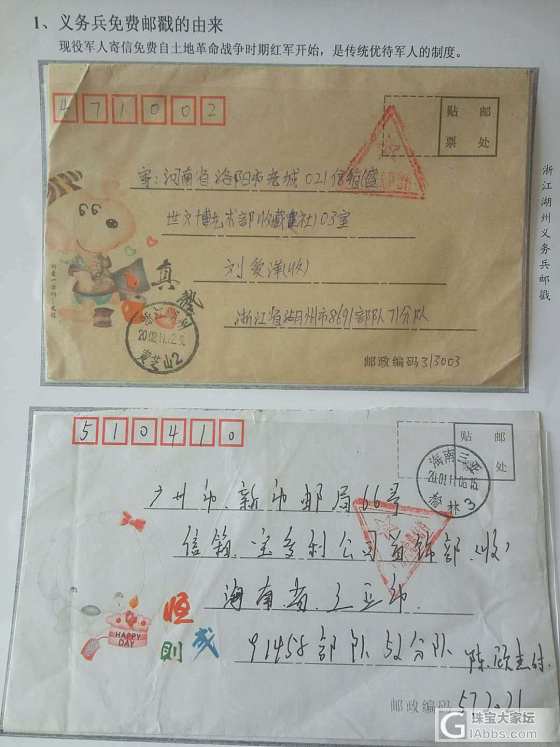 1、义务兵免费邮戳的由来
现役军人寄信免费自土地革命战争时期红军开始，是传统优待军人的制度。
浙江湖州义务兵邮戳
471002
贴 邮
票 处
寄：河南省洛阳市老城021信箱
世界博艺术部收藏社103室
刘爱泽(收)
真
浙江省湖州市8691部队71分队
浙江湖州
2002.11.12
黄芝山2
邮政编码313003
510410
贴 邮
票 处
海南三亚
2001.11.06
3
广州市.新市邮局66号
信箱.宝多利公司首饰部.收
海南省.三亚市.
恒
则 成
HAPPY DAY
91458部队52分队 陈
邮政编码 57
珠宝大家坛
Glabbs.com